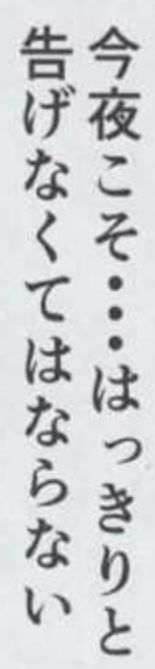 今夜こそ・・・はっきりと
告げなくてはならない